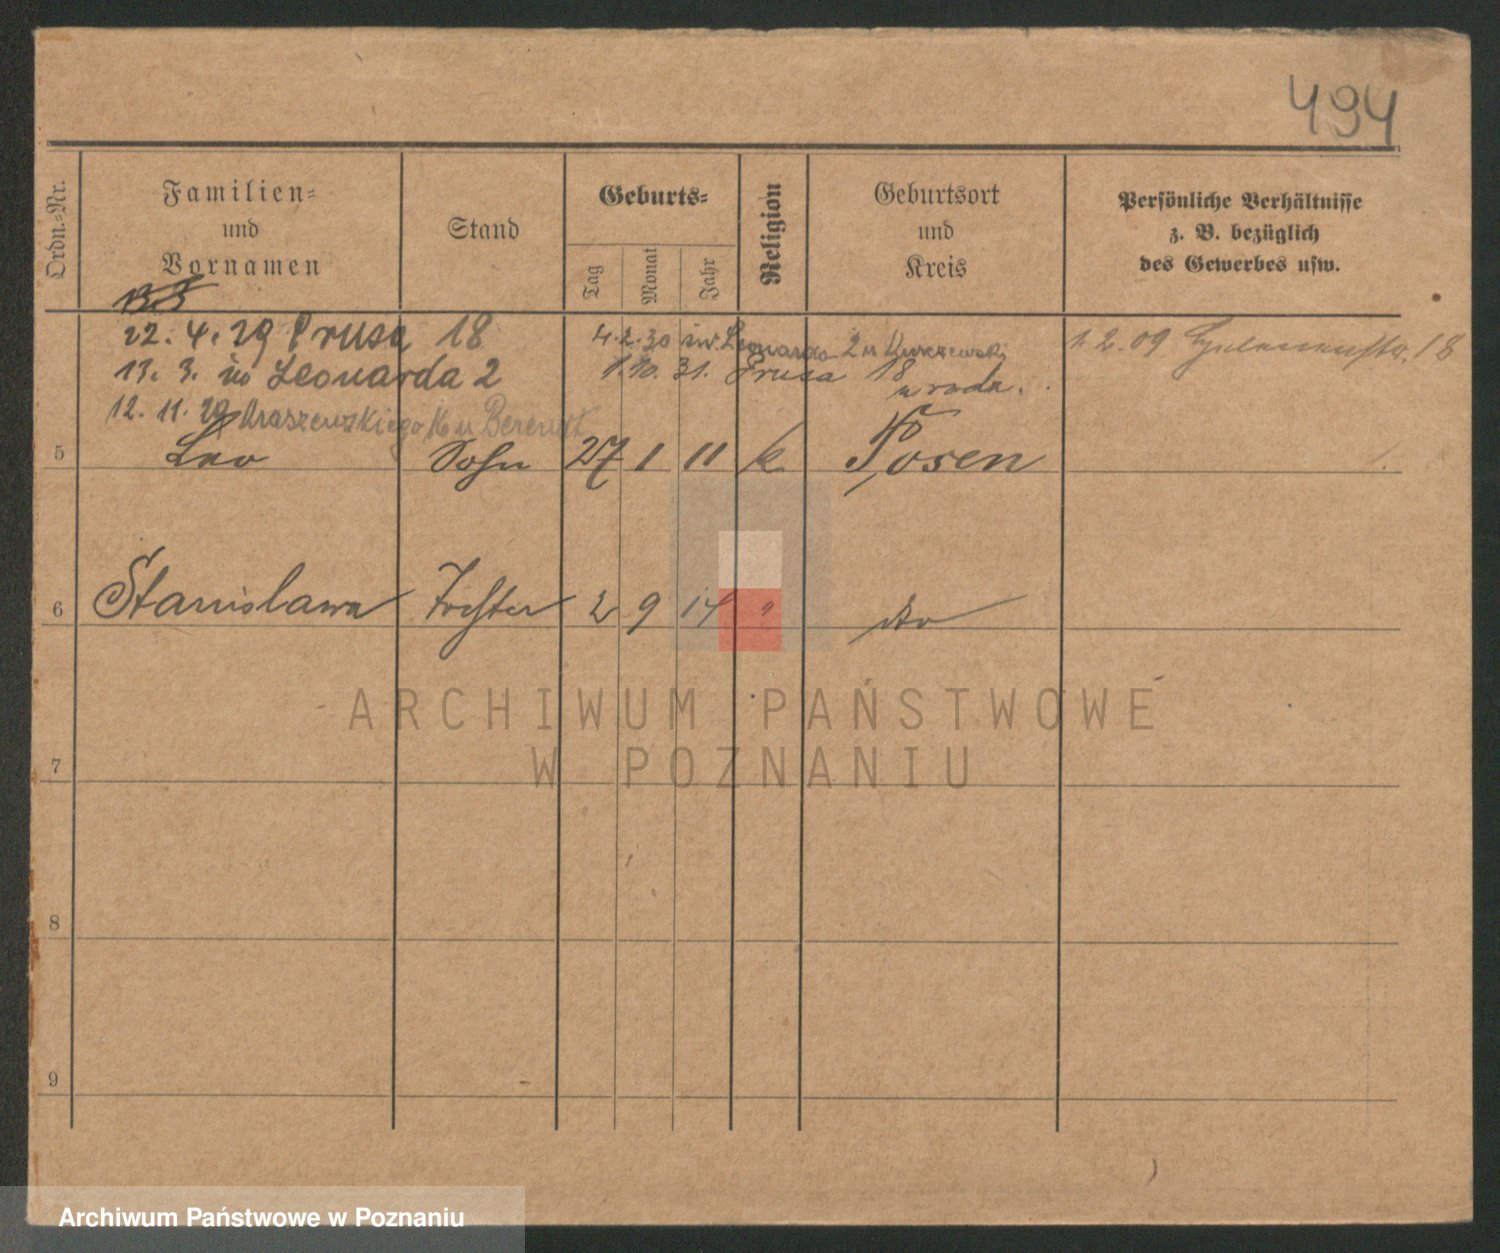 494
Ordn.-Nr.
Familien-
und
Vornamen
Stand
Geburts-
Tag
Monat
Jahr
Religion
Geburtsort
und
Kreis
Persönliche Verhältnisse
z. B. bezüglich
des Gewerbes usw.
22. 4. 29 Prusa 18
4. 2. 30 św. Leonarda 2 u
1. 2. 09 18
13. 3. Leonarda 2
1. 10. 31. Prusa 18
u rodz.
12. 11. 29 Kraszewskiego 16 u
5 Leo Sohn 27 1 11 k Posen
6 Stanislawa Tochter 2 9 14 " dto
ARCHIWUM PAŃSTWOWE
W POZNANIU
7
8
9
Archiwum Państwowe w Poznaniu